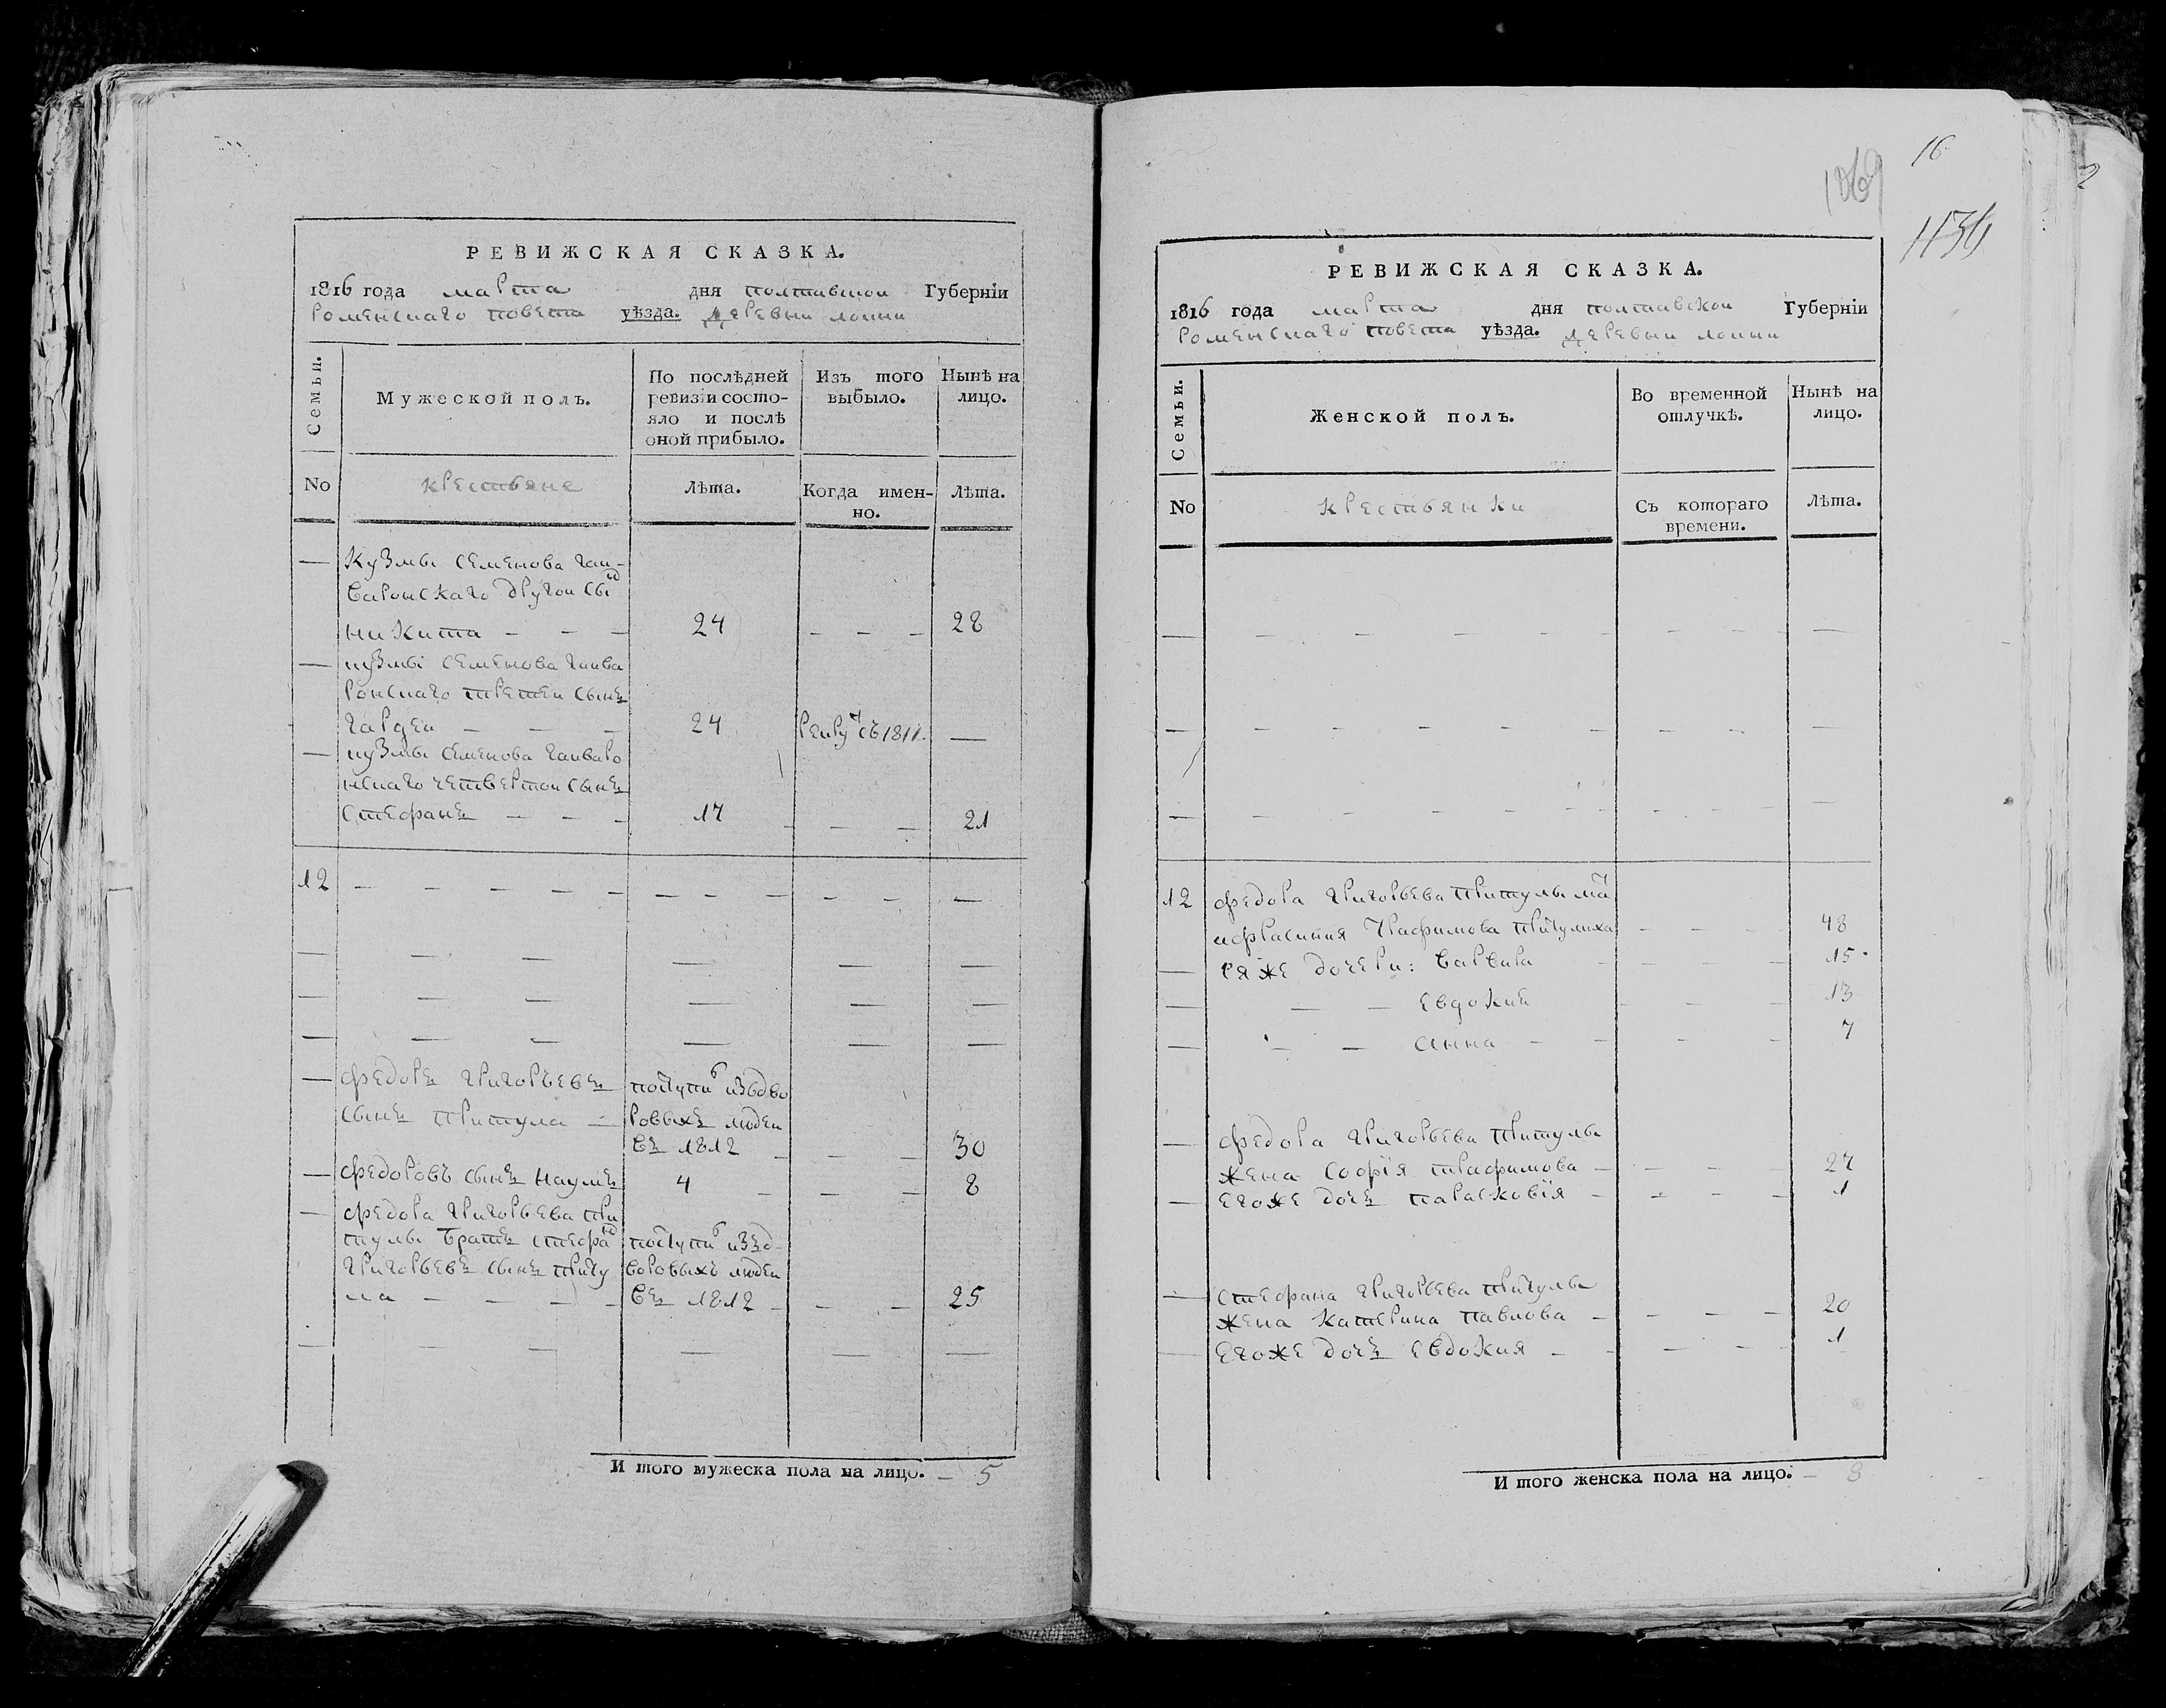 РЕВИЖСКАЯ СКАЗКА.
1816 года марта дня полтавской Губернїи
роменскаго повета уѣзда. деревни лопни
Семьи.
Мужеской полъ.
По послѣдней ревизїи состояло и послѣ оной прибыло.
Изъ того выбыло.
Нынѣ на лицо.
No
крестьяне
лѣта.
Когда именно.
лѣта.
— Кузмы Семенова гай-
варонскаго другой сын
никита — — — 24 — — — 28
— кузмы Семенова гайва
ронскаго третей сынъ
гардей — — — 24 рекру съ 1811. —
— кузмы Семенова гайваро
нскаго четвертой сынъ
Стефанъ — — — 17 — — — 21
12 — — — — — — — — — — —
— — — — — —
— — — — — —
— — — — — —
— федоръ григорьевъ поступи изъ дво
сынъ притула — ровыхъ людей
въ 1812 — — — 30
— федоровъ сынъ наумъ 4 — — — 8
— федора григорьева при
тулы братъ стефан поступи изъ д-
григорьевъ сынъ приту воровыхъ людей
ла — — — — въ 1812 — — — 25
— — — — — —
И того мужеска пола на лицо. — 5
1069
16
1136
РЕВИЖСКАЯ СКАЗКА.
1816 года марта дня полтавской Губернїи
роменскаго повета уѣзда. деревни лопни
Семьи.
Женской полъ.
Во временной отлучкѣ.
Нынѣ на лицо.
No
крестьянки
Съ котораго времени.
лѣта.
— — — — — — — — — —
— — — — — — — — — —
— — — — — — — — — —
12 федора григорьева притулы мат
афрасиния трафимова притулиха — — — 48
— ея же дочери: варвара — — — 15
— — — евдокия — — — 13
— — — анна — — — — 7
— федора григорьева притулы
жена софїя трафимова — — — — 27
— егоже дочъ парасковїя — — — — 1
— стефана григорьева притулы
жена катерина павлова — — — — 20
— егоже дочъ евдокия — — — — 1
И того женска пола на лицо. — 8